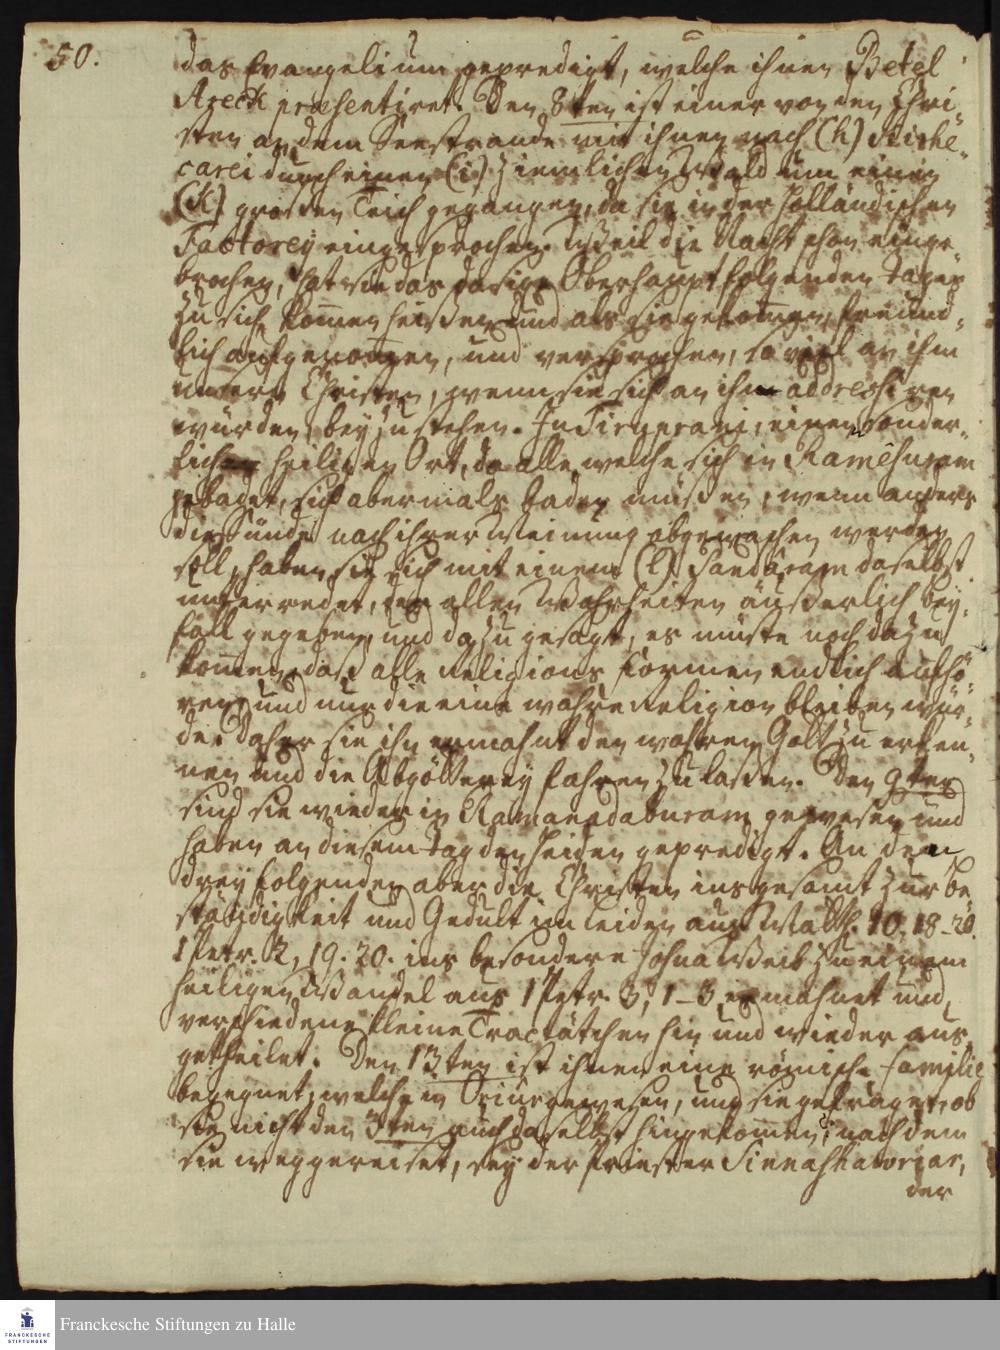 50.
das Evangelium gepredigt, welche ihnen Betel
Areck præsentiret. Den 8ten ist einer von den Chri„
sten an dem Seestrande mit ihnen nach (h)
carei durch einen (i) ziemlichen Wald um einen
(K) großen Teich gegangen, da sie in der Holländischen
Factorey eingesprochen. Weil die Nacht schon einge„
brochen, hat sie das dasige Oberhaupt folgenden Tages
zu sich kom̄en heißen und als sie gekom̄en, freund„
lich aufgenom̄en, und versprochen, so viel an ihm
unsern Christen, wenn sie sich an ihn addressiren
würden, beyzustehen. In einen sonder„
lich heiligen Ort, da alle, welche sich in Ramêsuram
gebadet, sich abermals baden müßen, wenn anders
die Sünde nach ihrer Meinung abgewaschen werden
soll, haben sie sich mit einem (l) Pandâram daselbst
unterredet, der allen Wahrheiten äußerlich bey„
fall gegeben, und dazu gesagt, es müste noch dazu
kom̄en, daß alle Religions Formen endlich aufhö„
ren, und nur die eine wahre Religion bleiben wür„
de. Daher sie ihn ermahnt den wahren Gott zu erken„
nen und die Abgötterey fahren zu laßen. Den 9ten
sind sie wieder in Ramanadaburam gewesen und
haben an diesem Tag den Heiden gepredigt. An den
drey folgenden aber die Christen insgesamt zur Be„
ständigkeit und Gedult im Leiden aus Matth. 10. 18-20.
1 Petr. 2, 19. 20. ins besondere Weib zu einem
heiligen Wandel aus 1 Petr. 3, 1-3 ermahnet und
verschiedene kleine Tractätchen hin und wieder aus„
getheilet. Den 13ten ist ihnen eine römische Familie
begegnet, welche in Oriur gewesen, und sie gefraget, ob
sie nicht den 3ten auch daselbst hingekom̄en; nach dem
sie weggereiset, sey der Priester
der
Franckesche Stiftungen zu Halle
FRANCKESCHE
STIFTUNGEN